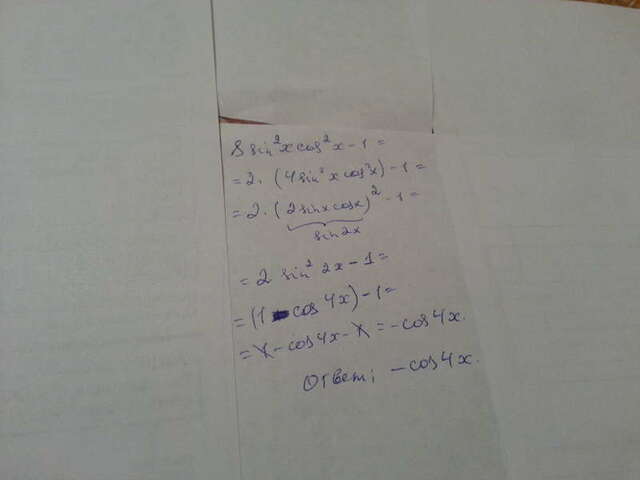 8 sin²x cos²x - 1 =
= 2 · (4 sin²x cos²x) - 1 =
= 2 · (2 sinx cosx)² - 1 =
sin2x
= 2 sin² 2x - 1 =
= (1 - cos 4x) - 1 =
= 1 - cos4x - 1 = -cos4x.
Ответ: -cos4x.